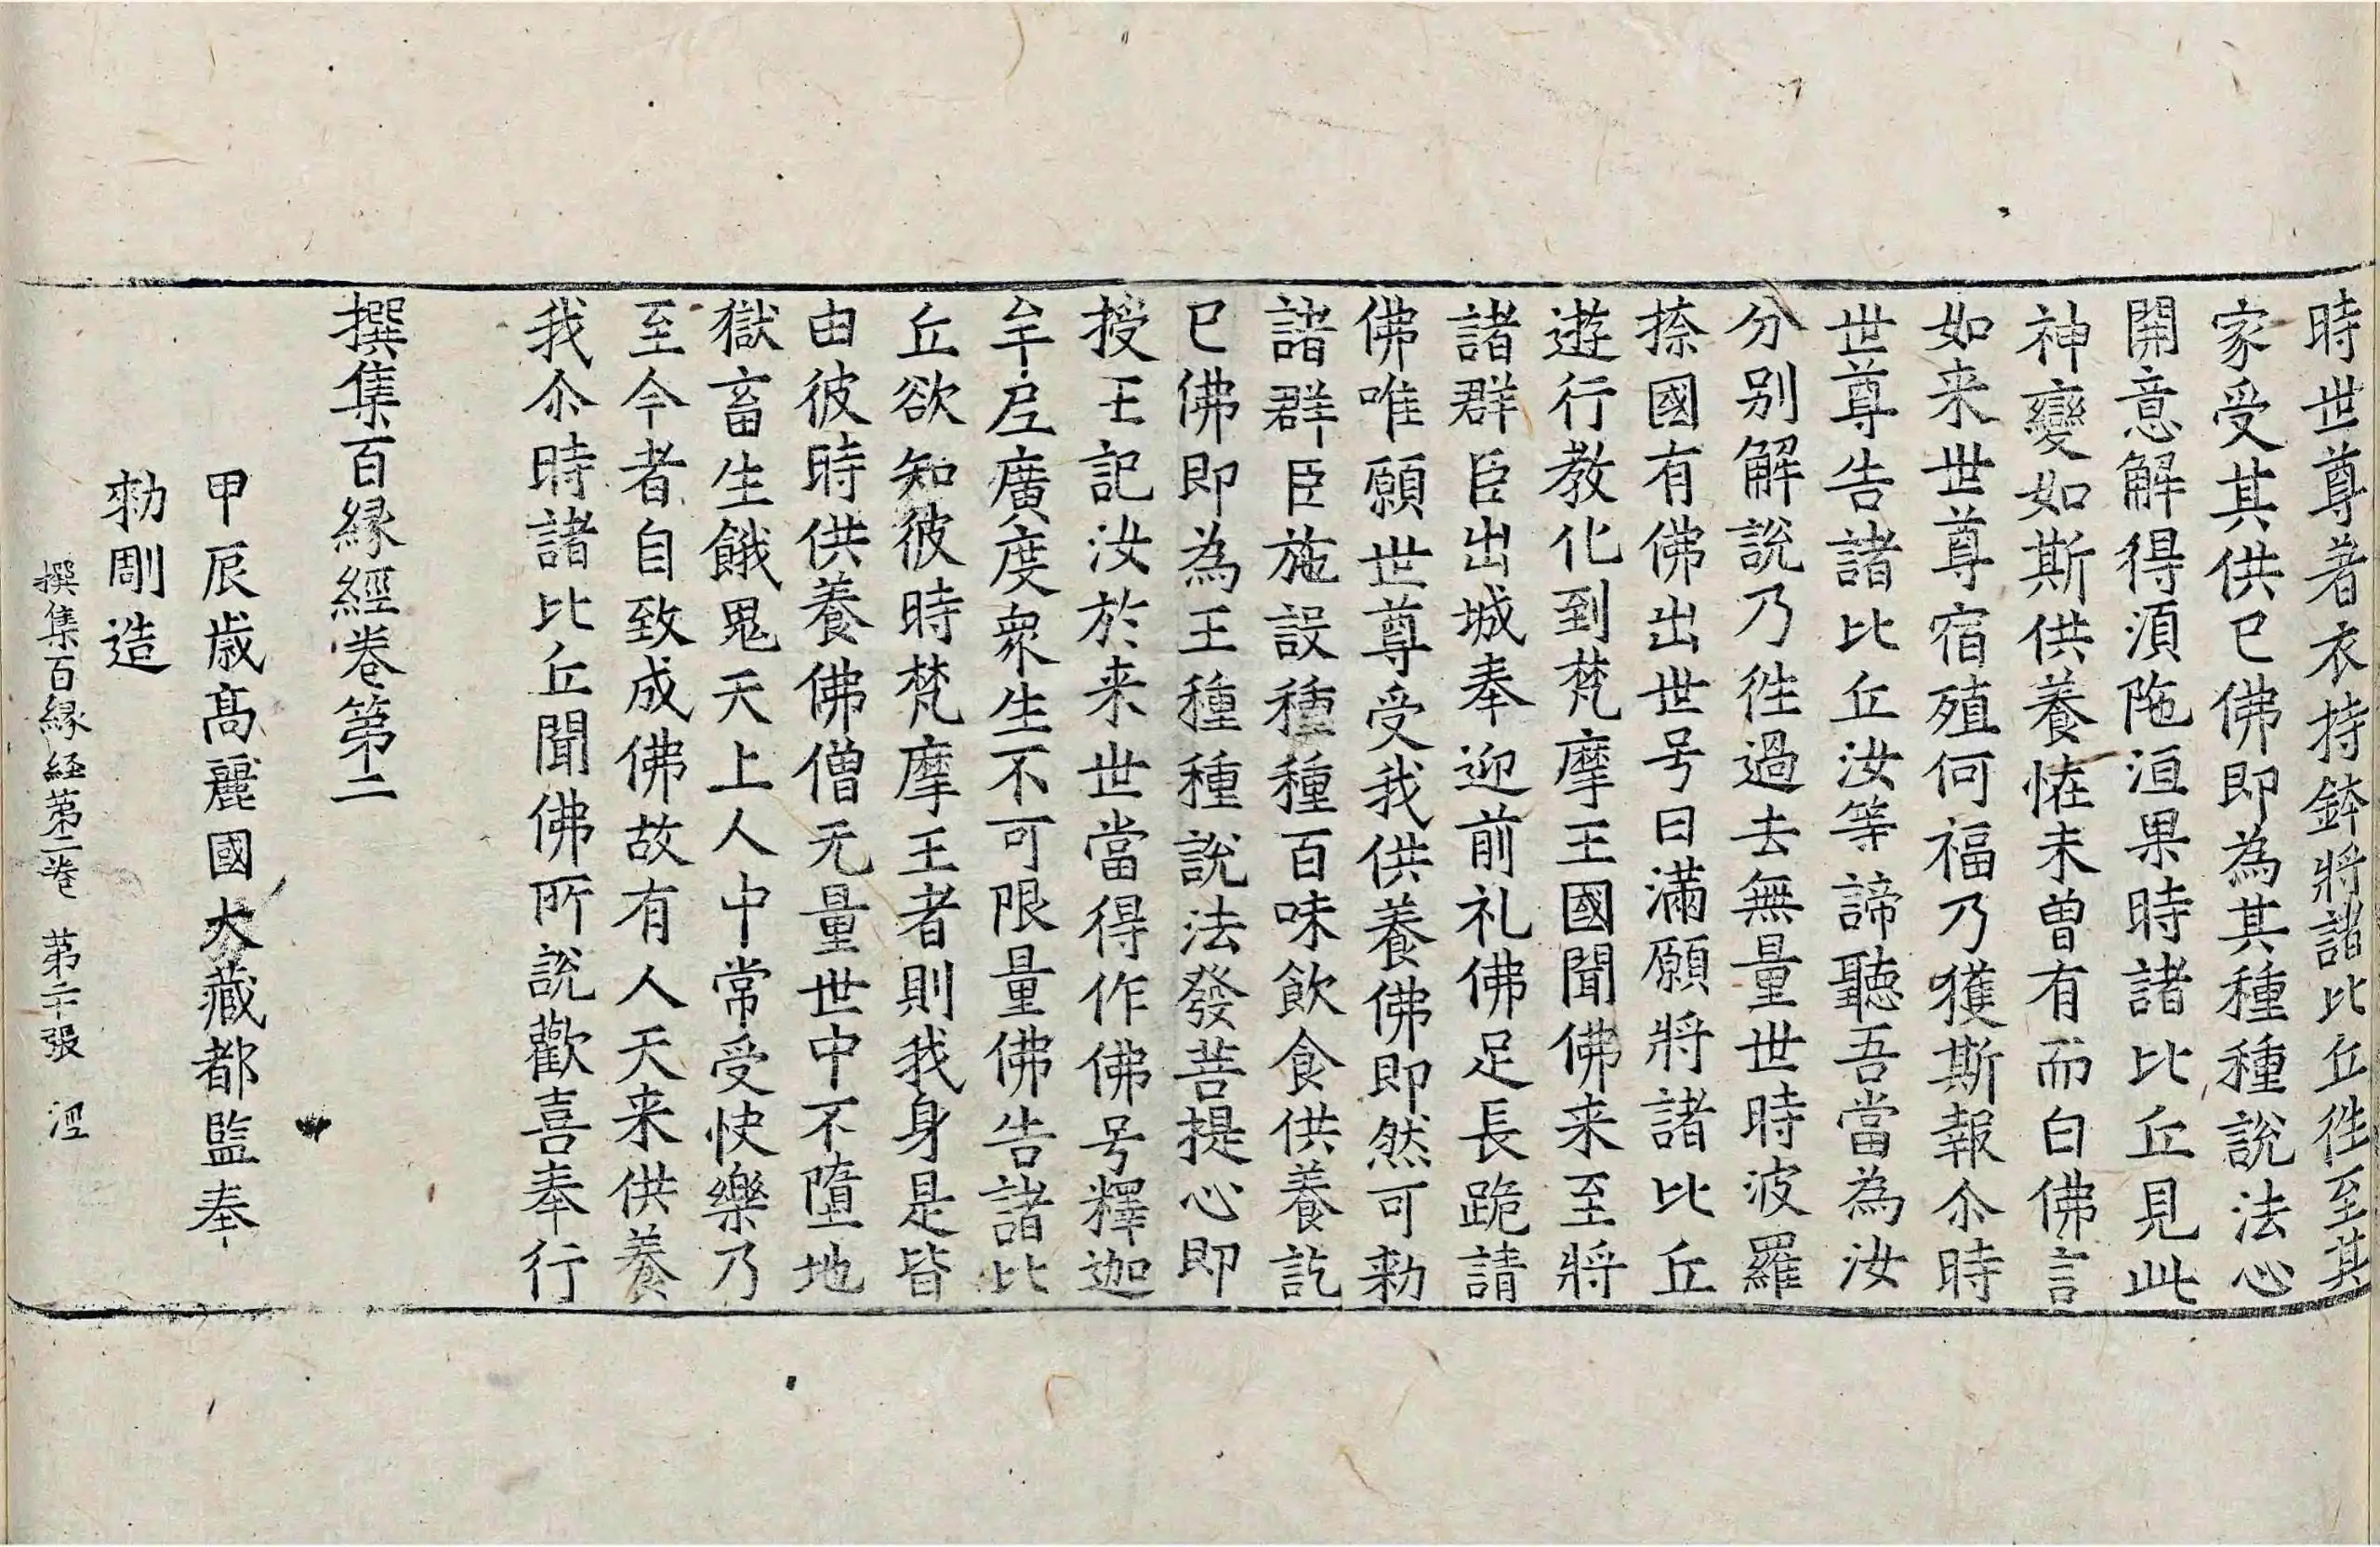 時世尊著衣持鉢將諸比丘徃至其
家受其供已佛即為其種種說法心
開意解得湏陁洹果時諸比丘見此
神變如斯供養恠未曾有而白佛言
如来世尊宿殖何福乃獲斯報尒時
世尊告諸比丘汝等諦聽吾當為汝
分别解說乃徃過去無量世時波羅
捺國有佛出世号曰滿願將諸比丘
遊行教化到梵摩王國聞佛来至將
諸群臣出城奉迎前礼佛足長跪請
佛唯願世尊受我供養佛即然可勑
諸群臣施設種種百味飲食供養訖
已佛即為王種種說法發菩提心即
授王記汝於来世當得作佛号釋迦
牟𡰱廣度衆生不可限量佛告諸比
丘欲知彼時梵摩王者則我身是皆
由彼時供養佛僧无量世中不墮地
獄畜生餓鬼天上人中常受快樂乃
至今者自致成佛故有人天来供養
我尒時諸比丘聞佛所說歡喜奉行
撰集百縁經卷第二
甲辰歳高麗國大藏都監奉
勑彫造
撰集百縁経第二卷 第二十張 涇